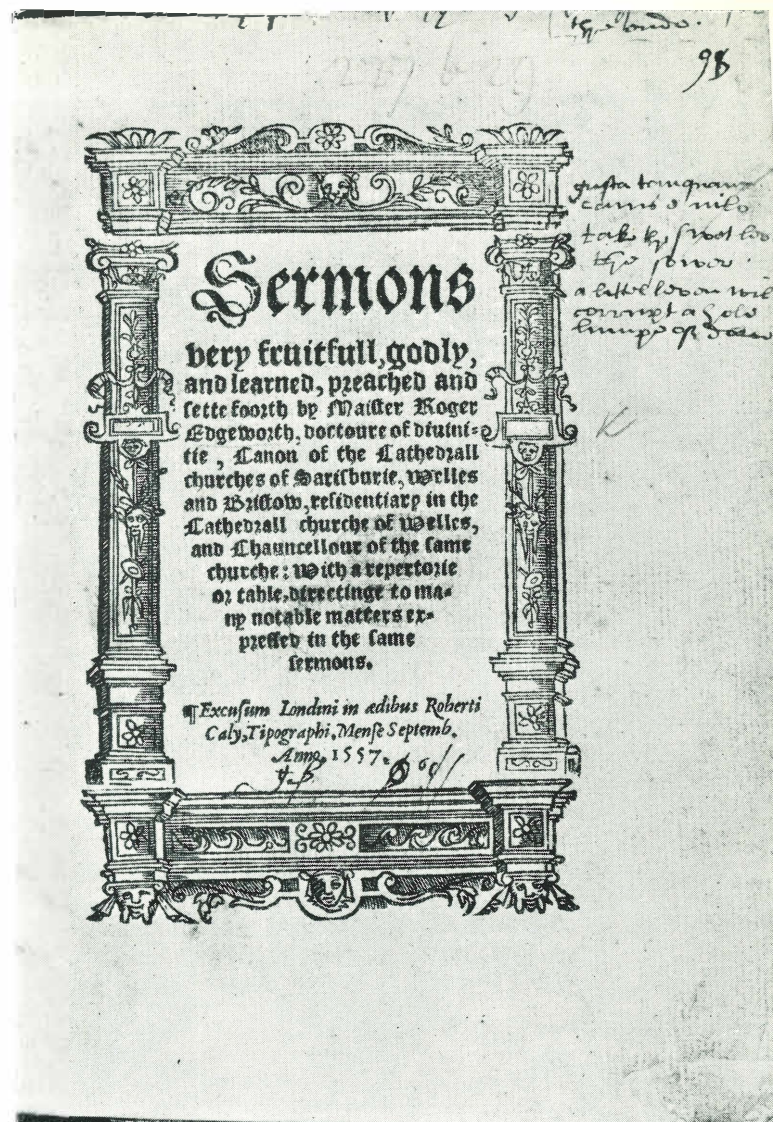 the ende.
98
Sermons
very fruitfull, godly,
and learned, preached and
sette foorth by Maister Roger
Edgeworth, doctoure of diuini-
tie, Canon of the Cathedrall
churches of Sarisburie, Welles
and Bristow, residentiary in the
Cathedrall churche of Welles,
and Chauncellour of the same
churche: With a repertorie
or table, directinge to ma-
ny notable matters ex-
pressed in the same
sermons.
¶Excusum Londini in ædibus Roberti
Caly, Tipographi, Mense Septemb.
Anno, 1557.
gusta tanquam
canis e nilo
take ye swet
the sower
a littel leven wil
corrupt a hole
lumpe of